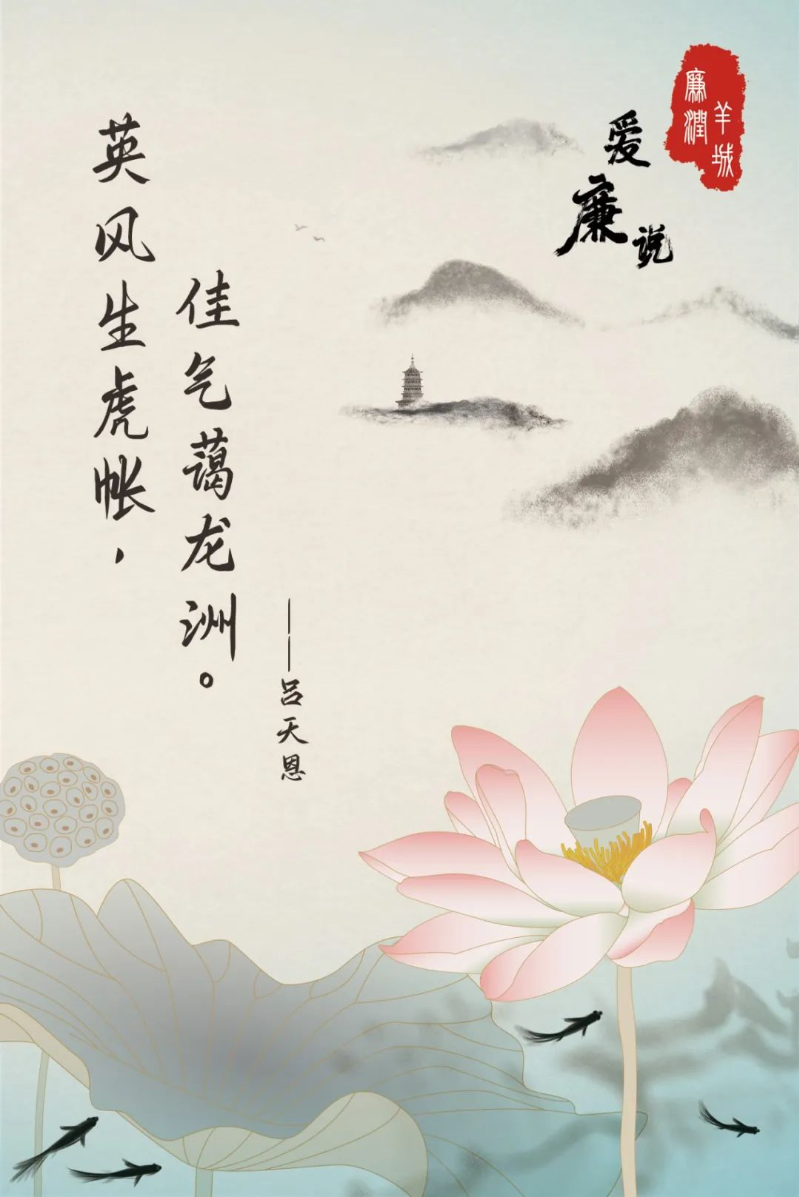 英风生虎帐，
佳气蔼龙洲。
——吕天恩
爱廉说
廉润
羊城